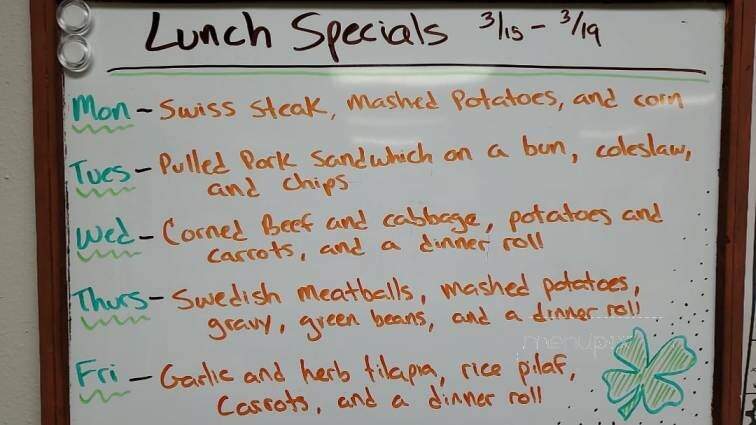 Lunch Specials 3/15 - 3/19
Mon - Swiss steak, mashed Potatoes, and corn
Tues - Pulled Pork Sandwhich on a bun, coleslaw,
and chips
Wed - Corned Beef and cabbage, potatoes and
carrots, and a dinner roll
Thurs - Swedish meatballs, mashed potatoes,
gravy, green beans, and a dinner roll
Fri - Garlic and herb tilapia, rice pilaf,
Carrots, and a dinner roll